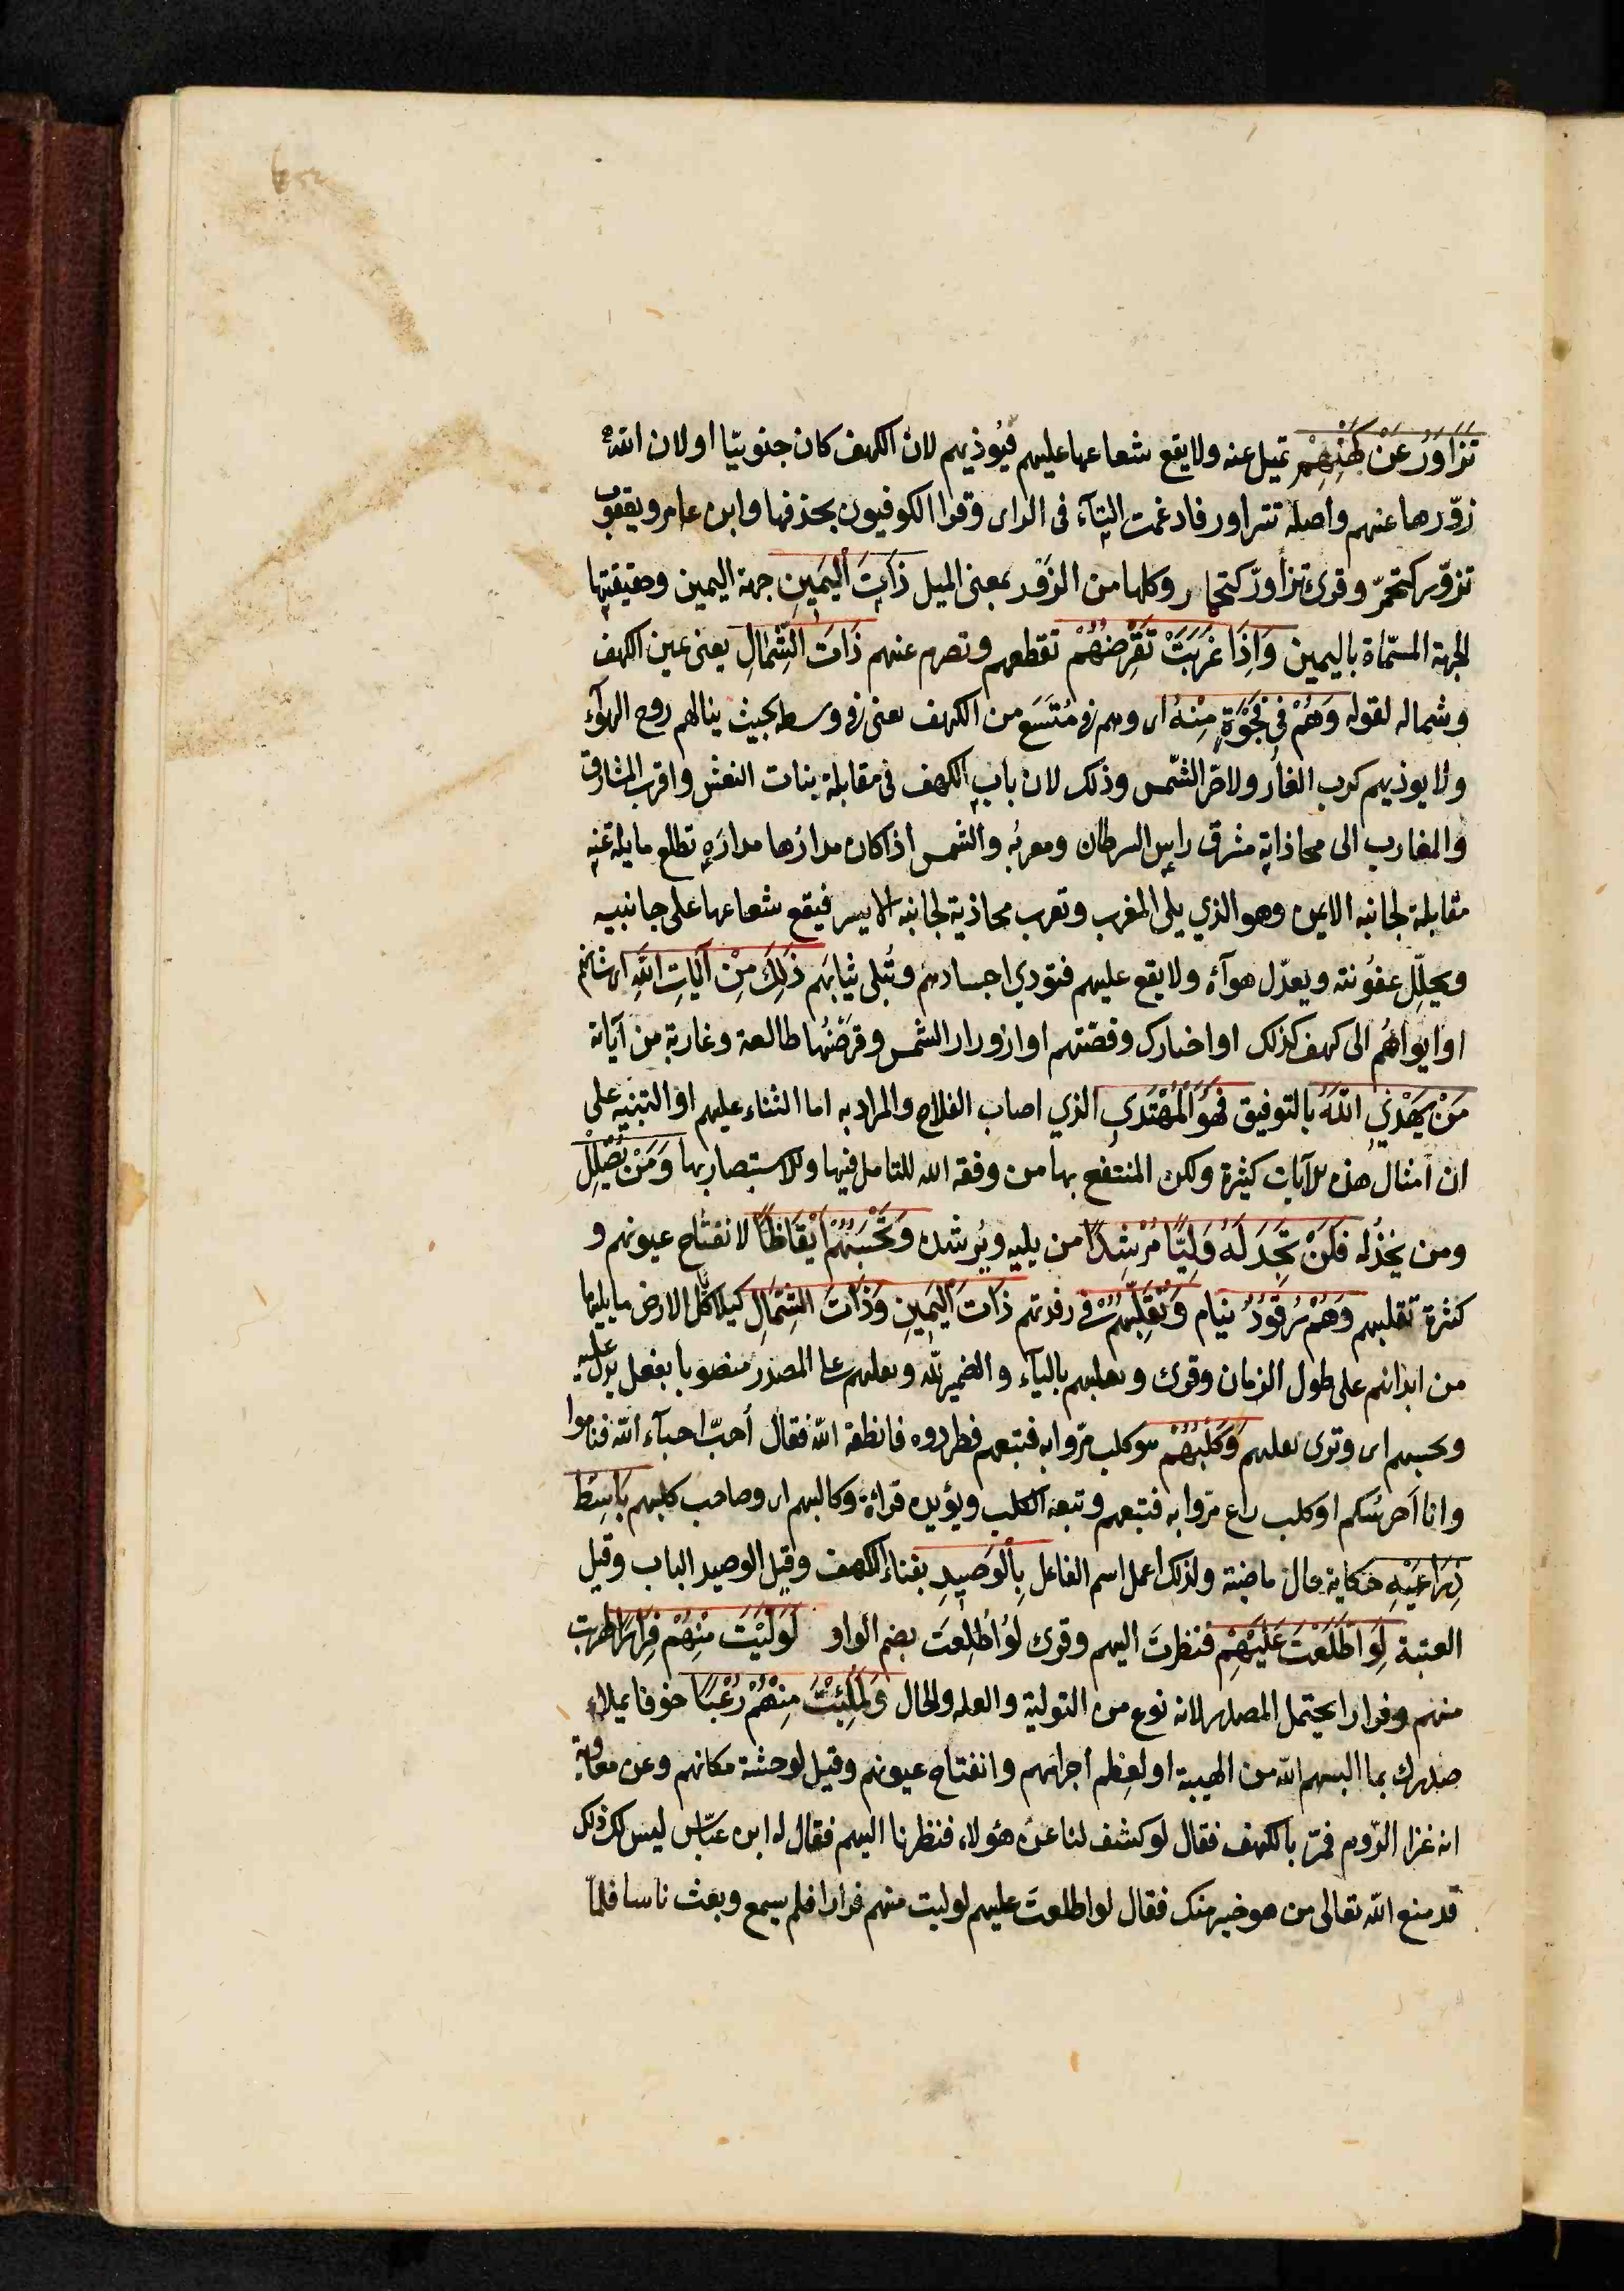 تَزَاوَرُ عَنْ كَهْفِهِمْ تميل عنه ولا يقع شعاعها عليهم فيؤذيهم لان الكهف كان جنوبيّا او لان الله
زوّرها عنهم واصله تتزاور فادغمت التآء فى الزاى وقرا الكوفيون بحذفها وابن عامر ويعقوب
تزورّ كتحمرّ وقرئ تزوارّ كتحمار وكلها من الزَوَر بمعنى الميل ذَاتَ الْيَمِينِ جهة اليمين وحقيقتها
الجهة المسمّاة باليمين وَاِذَا غَرَبَتْ تَقْرِضُهُمْ تقطعهم وتصرم عنهم ذَاتَ الشِّمَالِ يعنى يمين الكهف
وشماله لقوله وَهُمْ فِي فَجْوَةٍ مِنْهُ اى وهم فى مُتَسَع من الكهف يعنى فى وسطه بحيث ينالهم روح الهوآء
ولا يوذيهم كرب الغار ولا حرّ الشمس وذلك لان باب الكهف فى مقابلة بنات النعش واقرب المشارق
والمغارب الى محاذاته مشرق راس السرطان ومغربُه والشمس اذا كان مدارُها مدارَه تطلع مايلة عنه
مقابلة لجانبه الايمن وهو الذي يلى المغرب وتغرب محاذية لجانبه الايسر فيقع شعاعها على جانبيه
ويحلّل عفونته ويعدّل هوآءه ولا يقع عليهم فتودي اجسادهم وتُبلى ثيابَهم ذٰلِكَ مِنْ اٰيَاتِ اللّٰهِ اى شانهم
او ايواؤهُم الى كهف كذلك او اخبارك وقصّتهم او ازورار الشمس وقرضُها طالعة وغاربة من آياته
مَنْ يَهْدِي اللّٰهُ بالتوفيق فَهُوَ الْمُهْتَدِي الذي اصاب الفلاح والمراد به اما الثناء عليهم او التنبيه على
ان امثال هذه الآيات كثيرة ولكن المنتفع بها من وفقه الله للتامل فيها وللاستبصار بها وَمَنْ يُضْلِلْ
ومن يخذُله فَلَنْ تَجِدَ لَهُ وَلِيًّا مُرْشِدًا من يليه ويُرشده وَتَحْسَبُهُمْ اَيْقَاظًا لانفتاح عيونهم و
كثرة تقلبهم وَهُمْ رُقُودٌ نيام وَنُقَلِّبُهُمْ فى رقدتهم ذَاتَ الْيَمِينِ وَذَاتَ الشِّمَالِ كيلا تاكل الارض ما يليها
من ابدانهم على طول الزمان وقرئ ويقلبهم باليآء والضمير لله وتقلبهم على المصدر منصوبا بفعل يدل عليه
وتحسبهم اى وترى تقلبهم وَكَلْبُهُمْ هو كلب مرّوا به فتبعهم فطردوه فانطقه اللّه فقال اُحبّ احبآء اللّه فناموا
وانا اَحرسُكم او كلب راع مرّوا به فتبعهم وتبعه الكلب ويؤيده قراءة وكالبهم اى وصاحب كلبهم بَاسِطٌ
ذِرَاعَيْهِ حكاية حال ماضية ولذلك اُعمل اسم الفاعل بِالْوَصِيدِ بفناء الكهف وقيل الوصيد الباب وقيل
العتبة لَوِ اطَّلَعْتَ عَلَيْهِمْ فنظرتَ اليهم وقرئ لوُ اطَّلَعْتَ بضم الواو لَوَلَّيْتَ مِنْهُمْ فِرَارًا لهربت
منهم وفرارا يحتمل المصدر لانه نوع من التولية والعله والحال وَلَمُلِئْتَ مِنْهُمْ رُعْبًا خوفا يملاء
صدرك بما البسهم اللّه من الهيبة او لعِظم اجرامهم وانفتاح عيونهم وقيل لوحشة مكانهم وعن معاوية
انه غزا الرّوم فمرّ بالكهف فقال لو كشف لنا عن هؤلاء فنظرنا اليهم فقال له ابن عبّاس ليس لك ذلك
قد منع اللّه تعالى من هو خير منك فقال لو اطلعتَ عليهم لوليت منهم فرارا فلم يسمع وبعث ناسا فلمّا